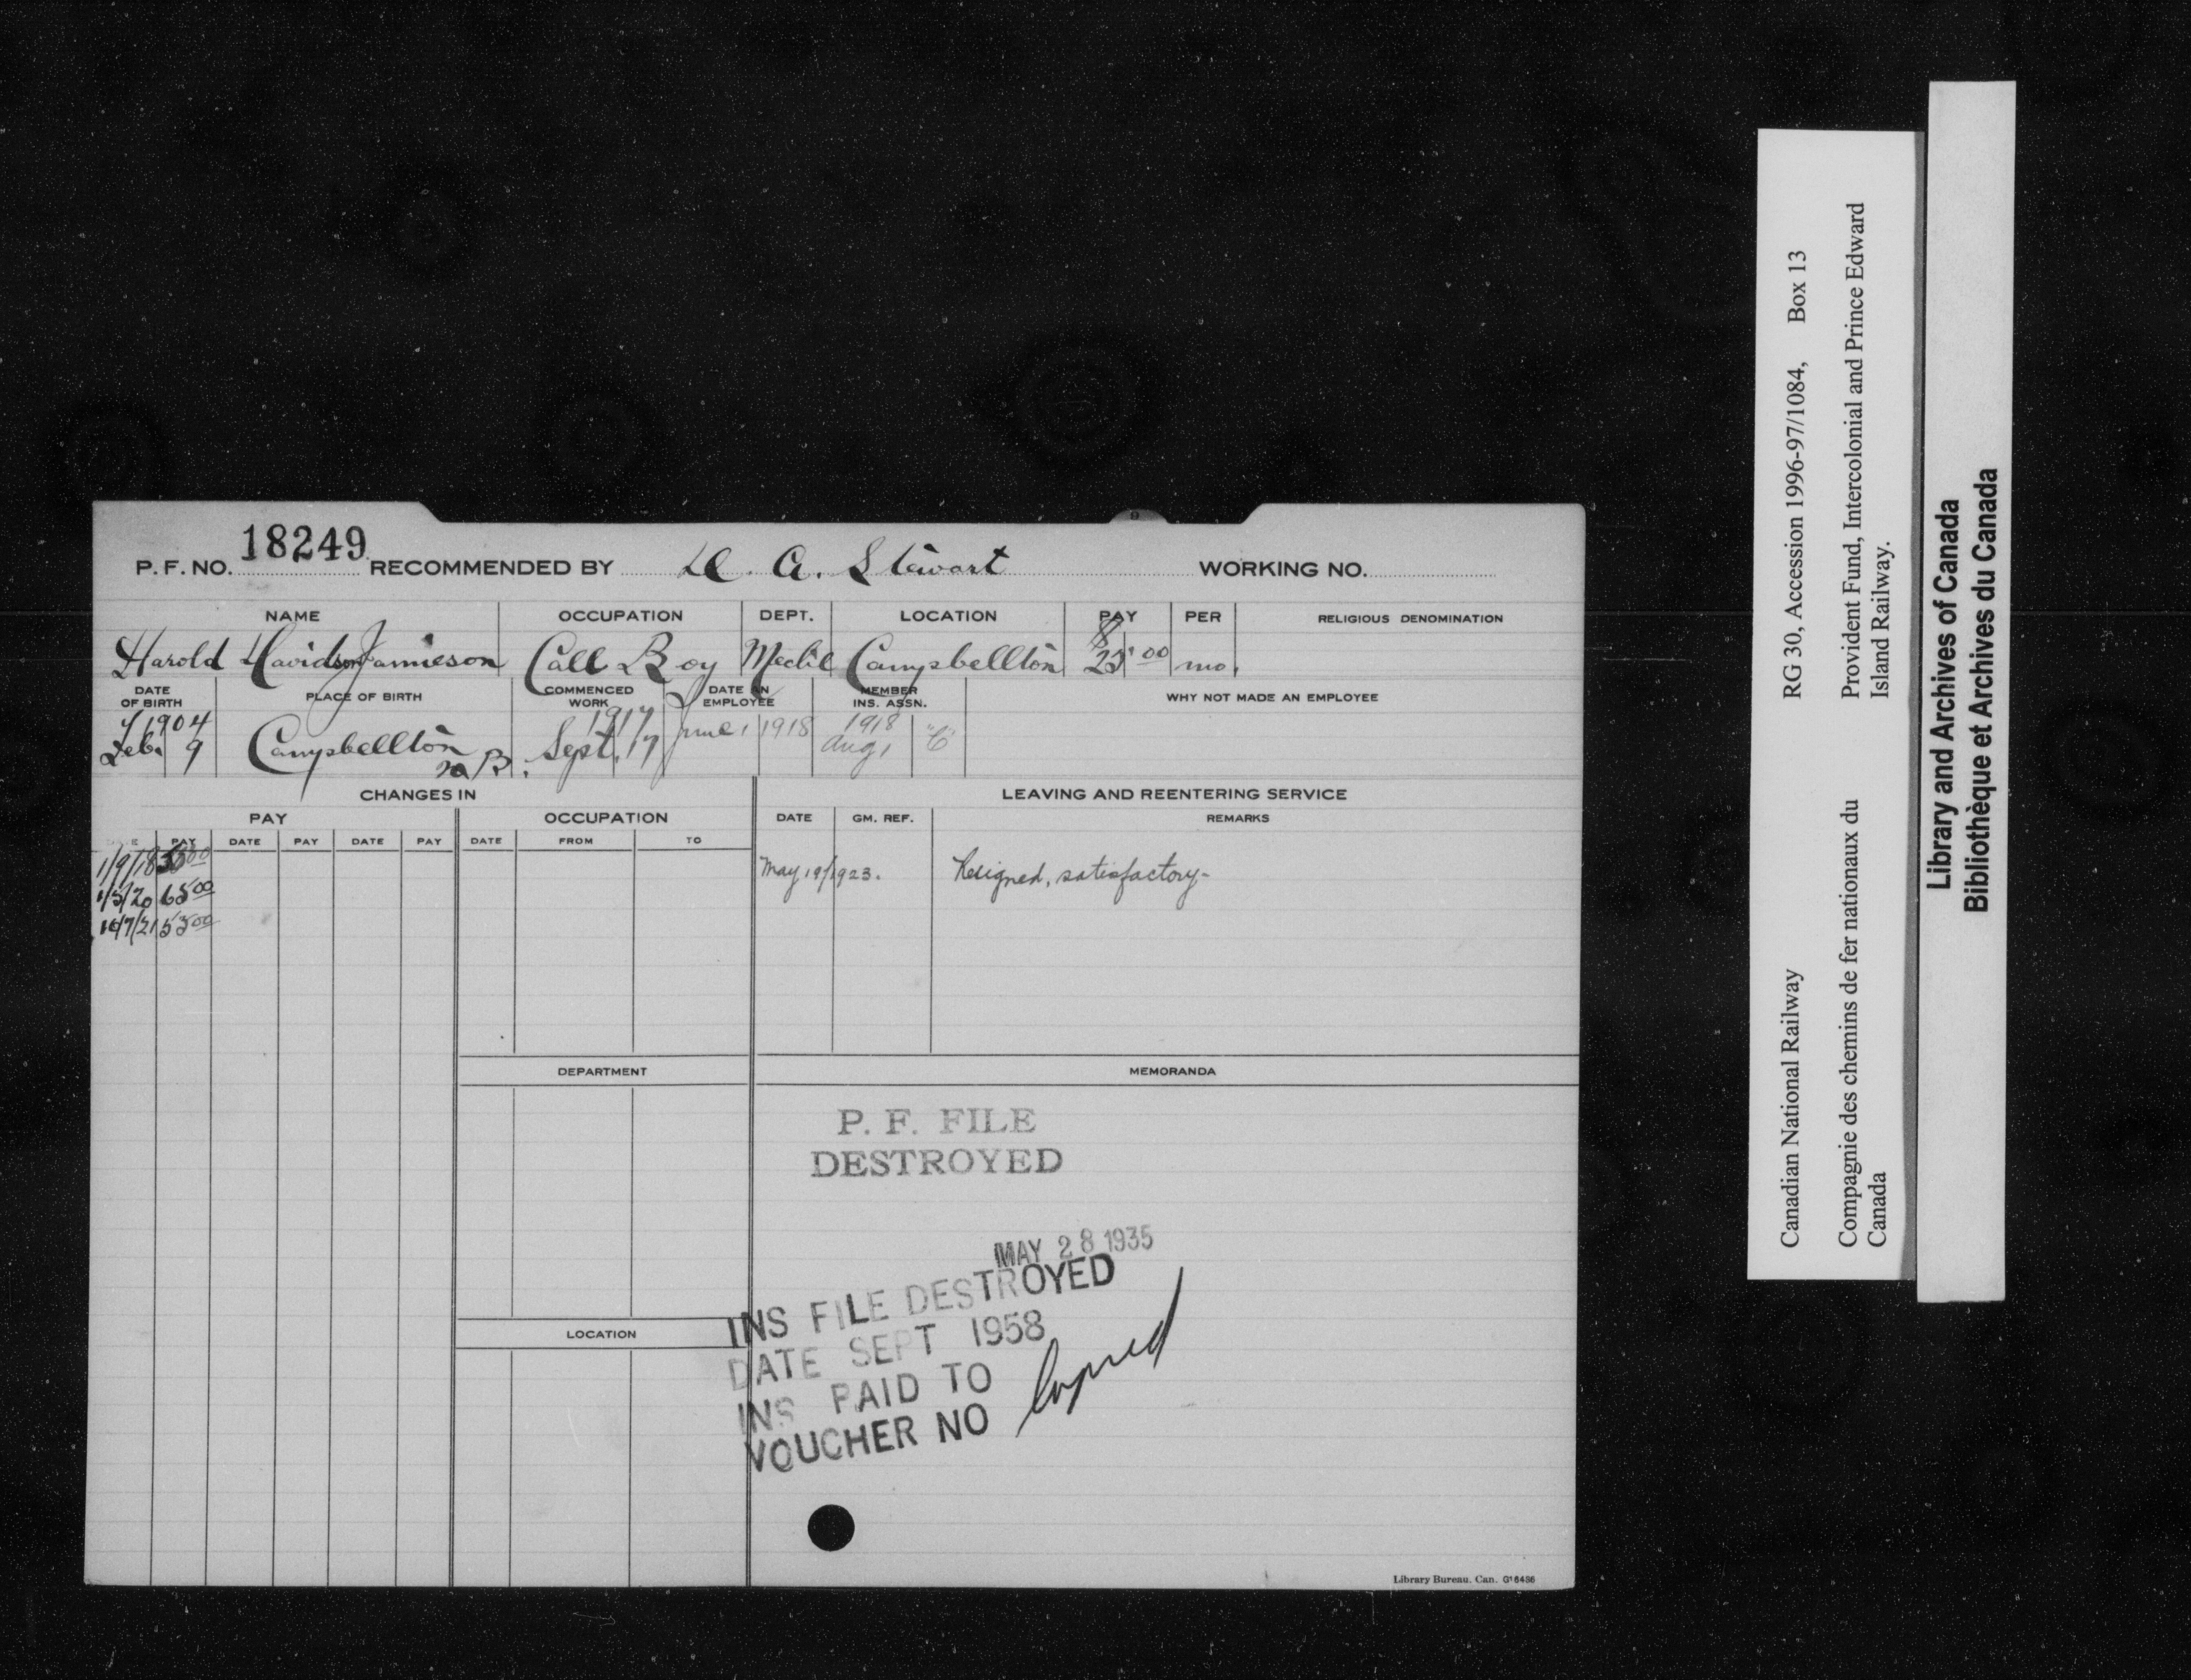 P. F. NO. 18249 RECOMMENDED BY D. A. Stewart WORKING NO.
NAME OCCUPATION DEPT. LOCATION PAY PER RELIGIOUS DENOMINATION
Harold Davidson Jamieson Call Boy Mechl Campbellton $ 25.00 mo.
DATE OF BIRTH PLACE OF BIRTH COMMENCED WORK DATE AN EMPLOYEE MEMBER INS. ASSN. WHY NOT MADE AN EMPLOYEE
1904 1917 1918
Feb. 9 Campbellton N B. Sept. 17 June 1 1918 Aug 1 "C"
CHANGES IN LEAVING AND REENTERING SERVICE
PAY OCCUPATION DATE GM. REF. REMARKS
PAY DATE PAY DATE PAY DATE FROM TO
1/9/18
May 19/1923. Resigned, satisfactory-
1/5/20 65 00
16/7/21 55 00
DEPARTMENT MEMORANDA
P. F. FILE
DESTROYED
MAY 28 1935
INS FILE DESTROYED
DATE SEPT 1958
INS PAID TO
VOUCHER NO Lapsed
LOCATION
Library Bureau. Can. G16436
Canadian National Railway RG 30, Accession 1996-97/1084, Box 13
Compagnie des chemins de fer nationaux du Provident Fund, Intercolonial and Prince Edward
Canada Island Railway.
Library and Archives of Canada
Bibliothèque et Archives du Canada